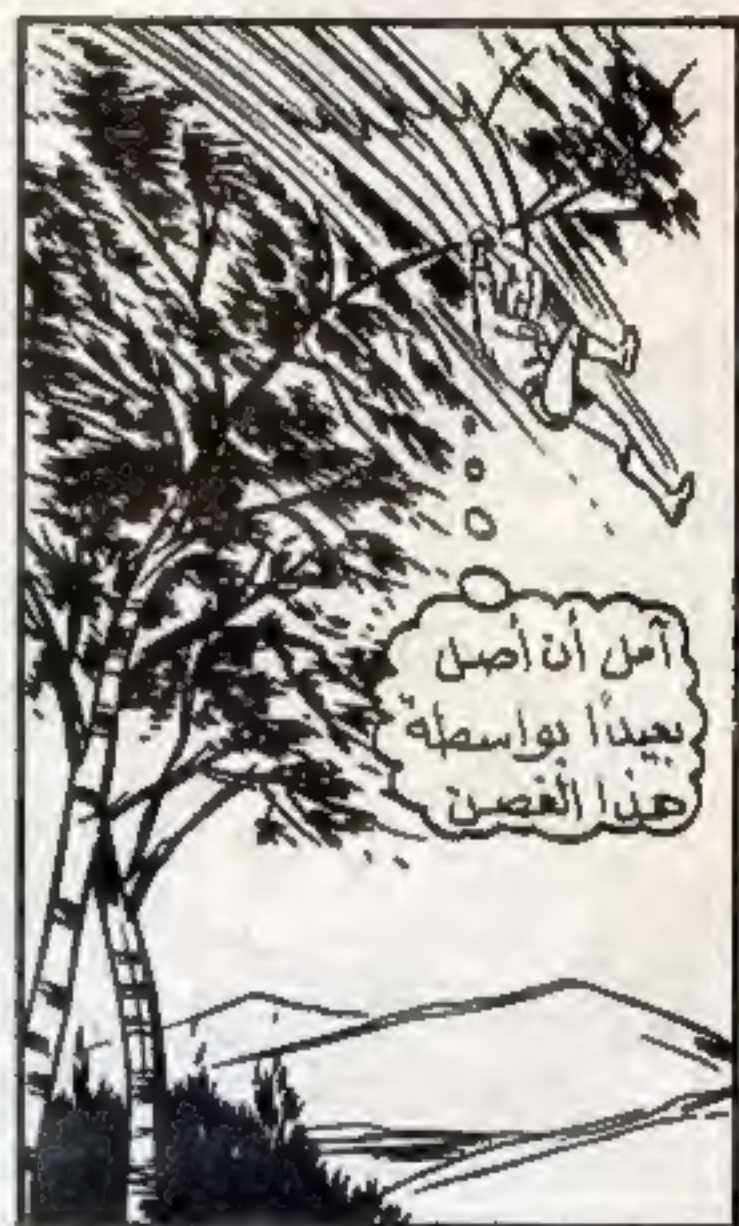 آمل أن أصل
بعيدًا بواسطة
هذا الغصن